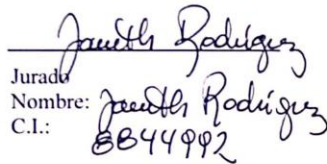 Janeth Rodríguez
Jurado
Nombre: Janeth Rodríguez
C.I.: 8844992